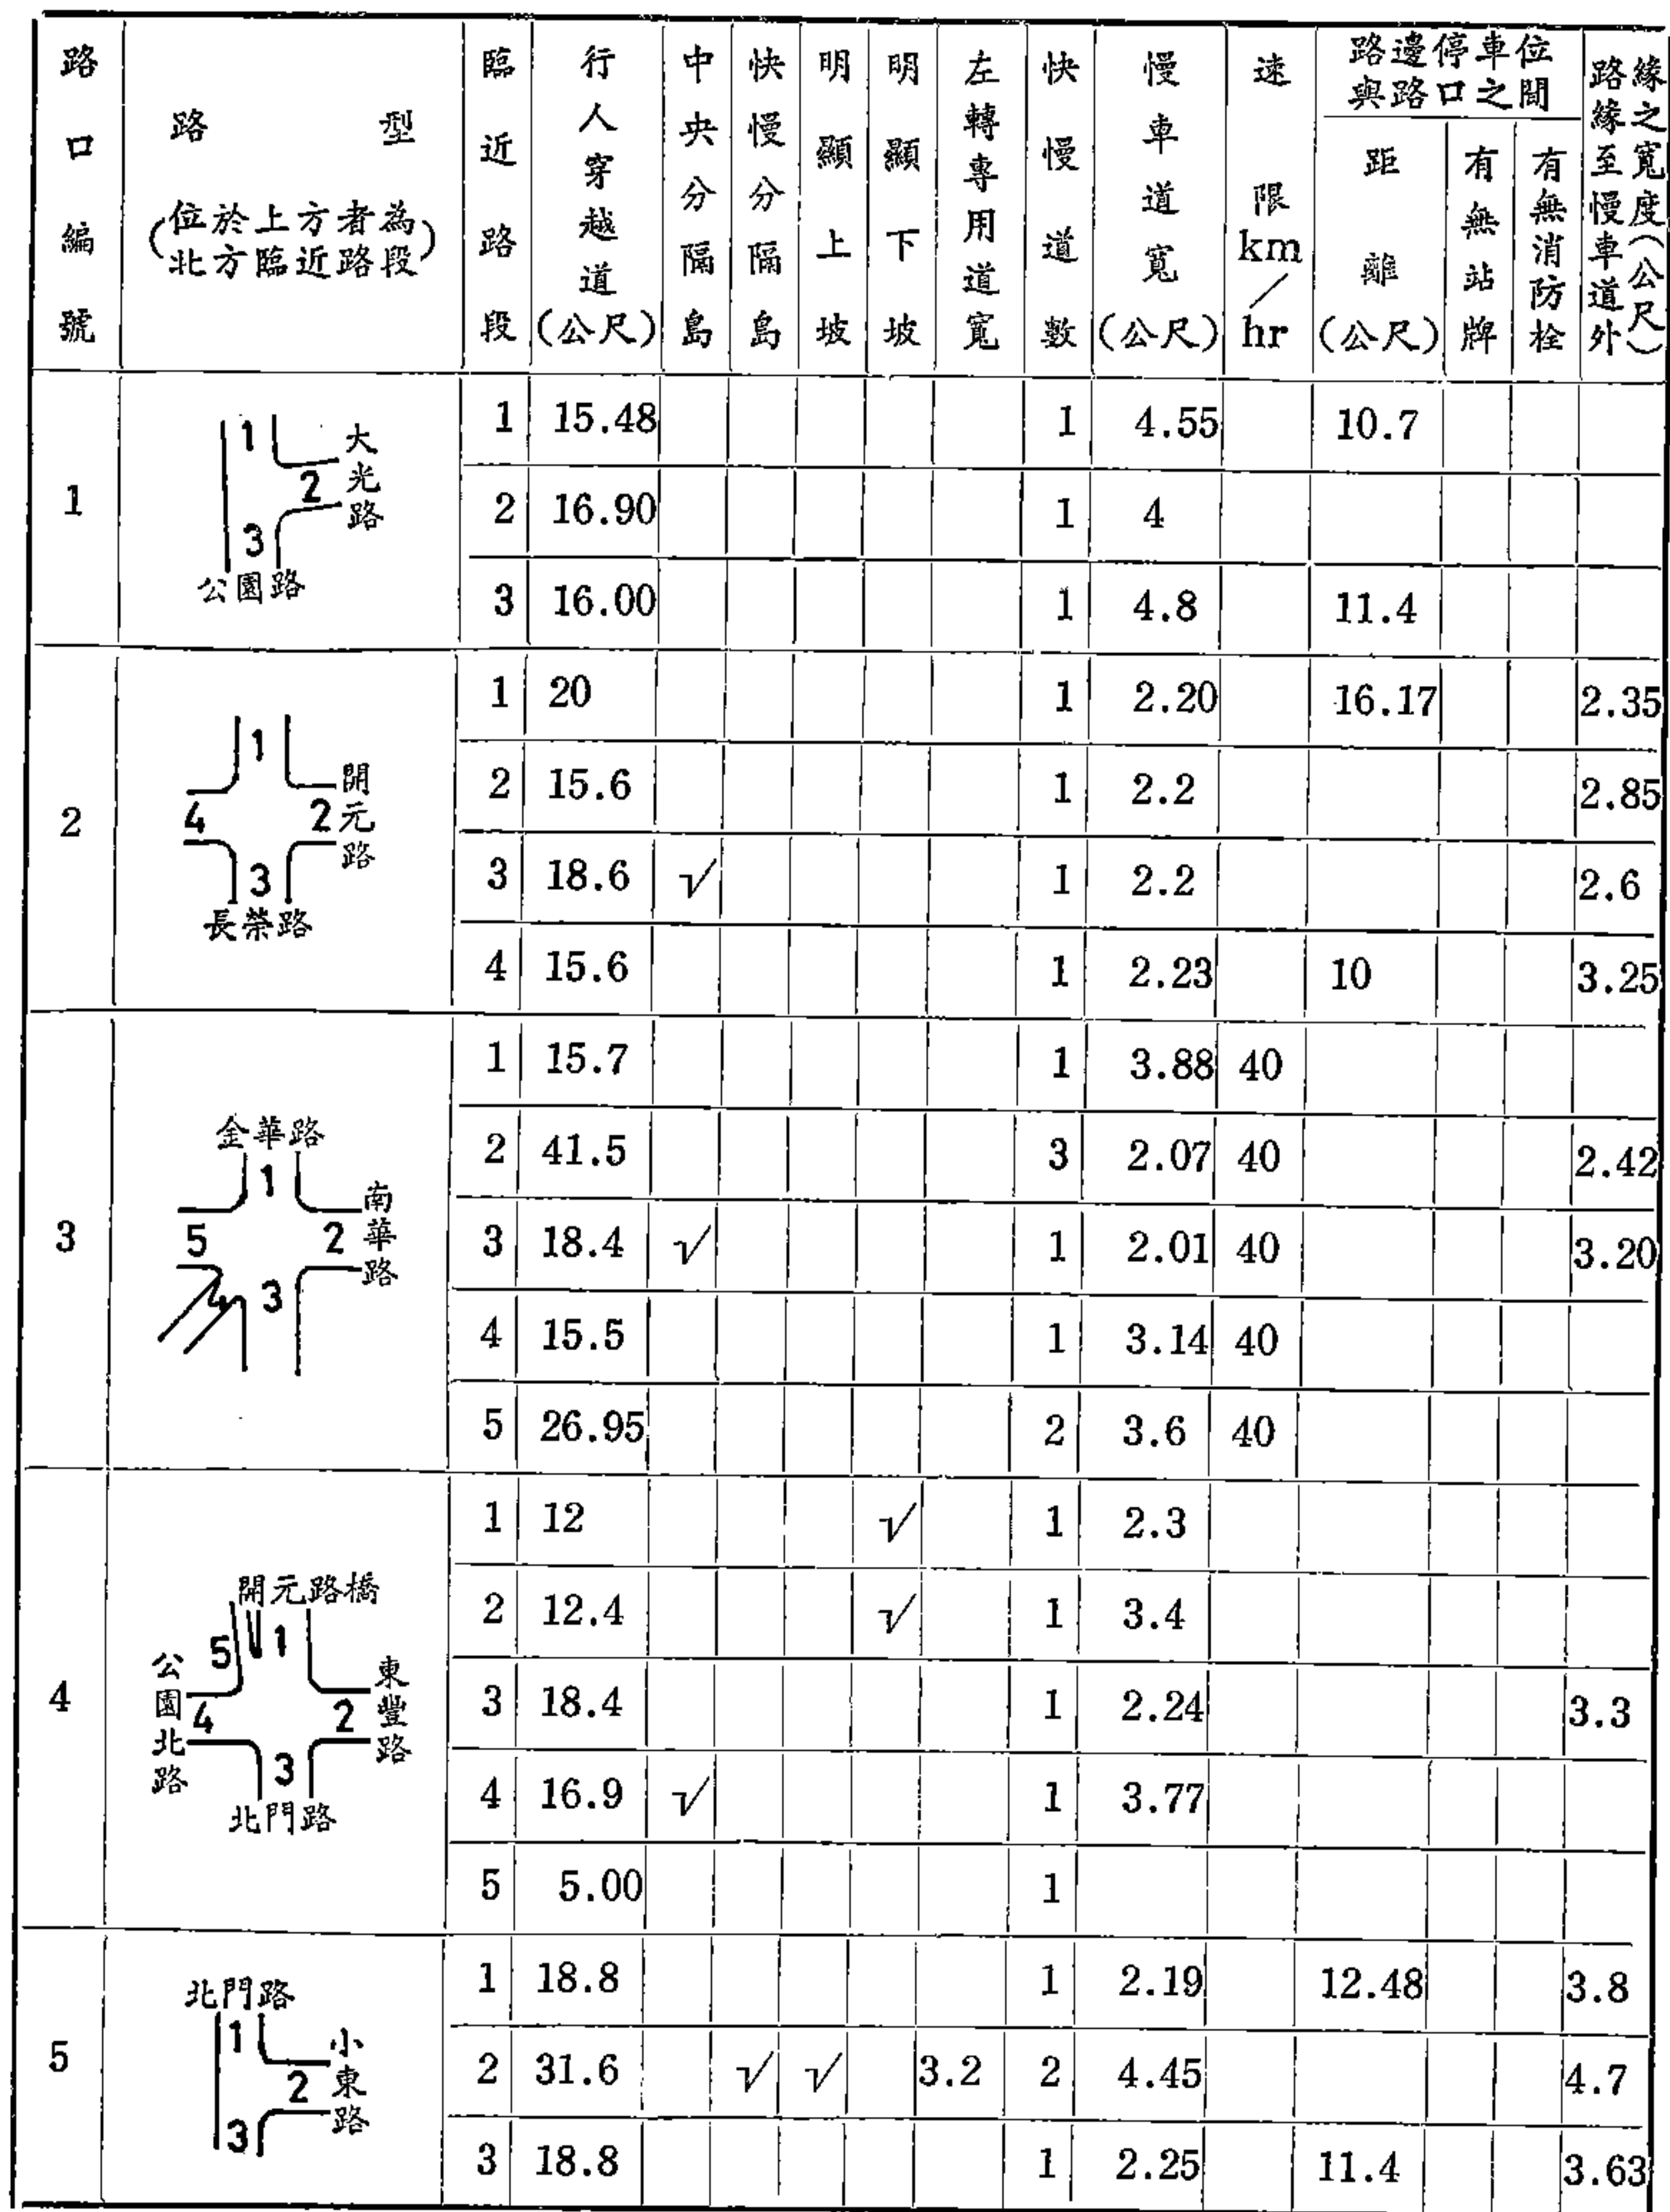 路口編號 路型(位於上方者為北方臨近路段) 臨近路段 行人穿越道(公尺) 中央分隔島 快慢分隔島 明顯上坡 明顯下坡 左轉專用道寬 快慢道數 慢車道寬(公尺) 速限km/hr 路邊停車位與路口之間 距離(公尺) 有無站牌 有無消防栓 路緣至慢車道外緣之寬度(公尺)
1
1 大光路
2
3
公園路
1 15.48 1 4.55 10.7
2 16.90 1 4
3 16.00 1 4.8 11.4
2
1
4 2 開元路
3
長榮路
1 20 1 2.20 16.17 2.35
2 15.6 1 2.2 2.85
3 18.6 √ 1 2.2 2.6
4 15.6 1 2.23 10 3.25
3
金華路
1
5 2 南華路
4 3
1 15.7 1 3.88 40
2 41.5 3 2.07 40 2.42
3 18.4 √ 1 2.01 40 3.20
4 15.5 1 3.14 40
5 26.95 2 3.6 40
4
開元路橋
5 1
公園北路 4 2 東豐路
3
北門路
1 12 √ 1 2.3
2 12.4 √ 1 3.4
3 18.4 1 2.24 3.3
4 16.9 √ 1 3.77
5 5.00 1
5
北門路
1
2 小東路
3
1 18.8 1 2.19 12.48 3.8
2 31.6 √ √ 3.2 2 4.45 4.7
3 18.8 1 2.25 11.4 3.63